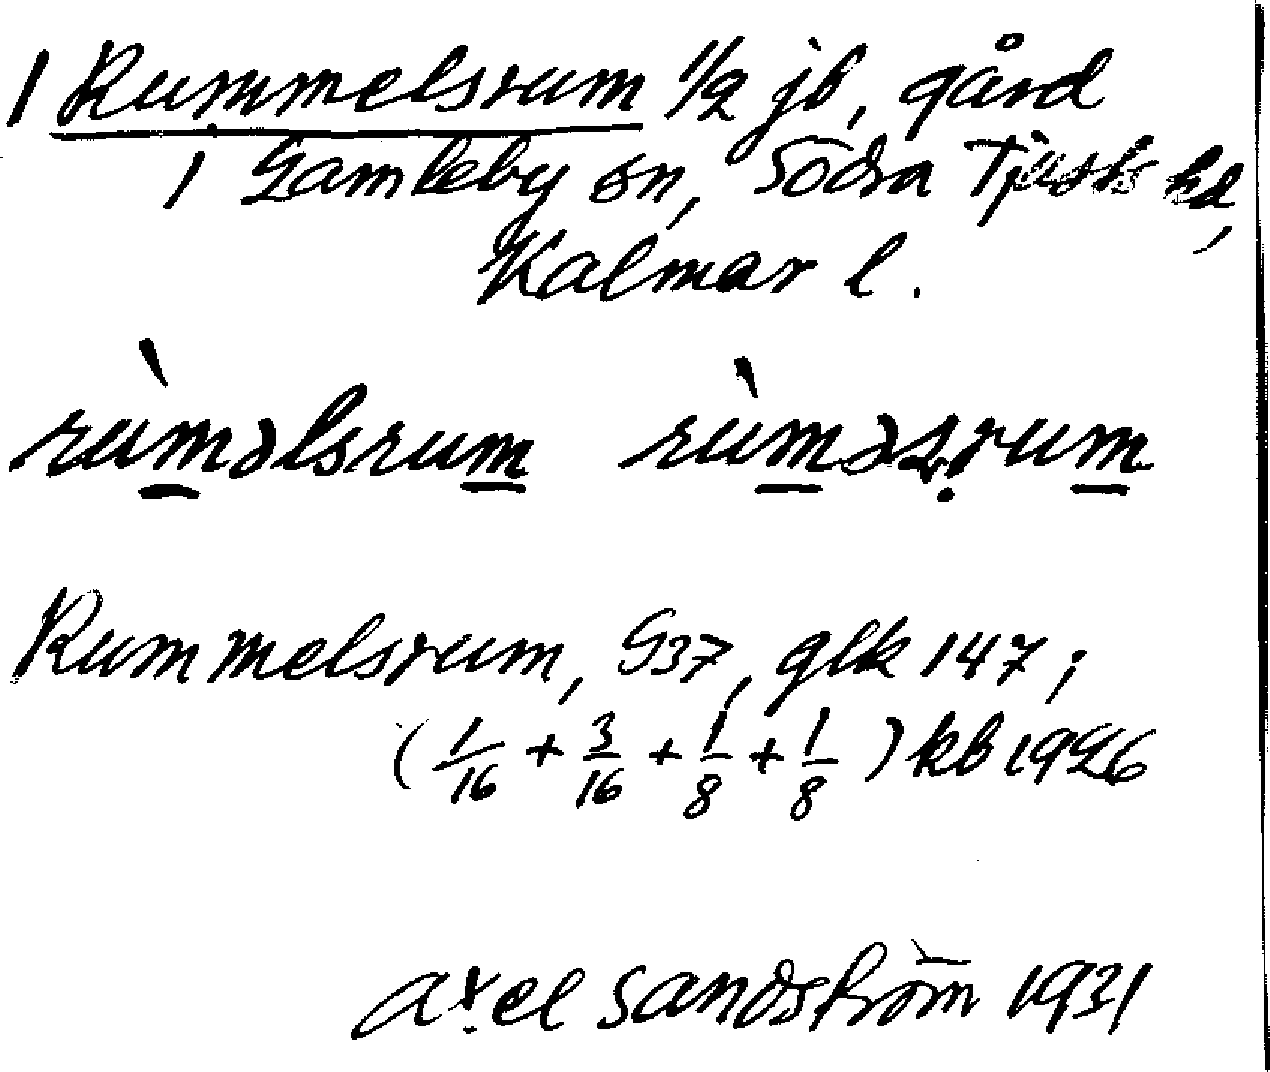 1 Rummelsrum 1/2 jb, gård
i Gamleby sn, Södra Tjusts hd,
Kalmar l.
rùməlsrum rùməsrum
Rummelsrum, G37, glk 147;
(1/16 + 3/16 + 1/8 + 1/8) kb 1926
Axel Sandström 1931